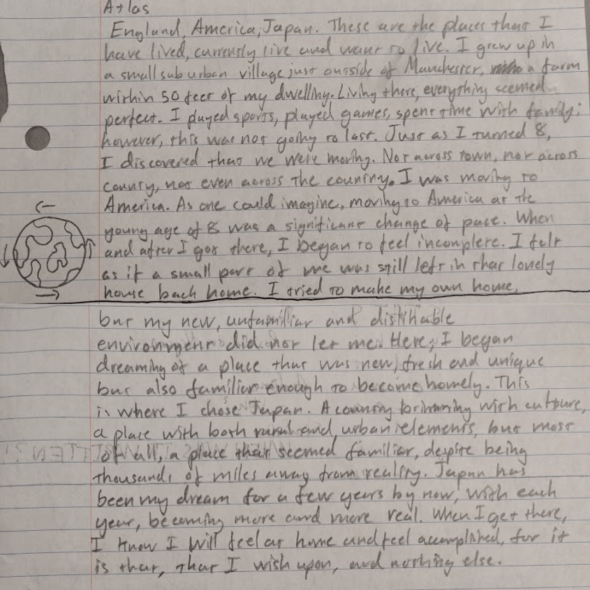 Atlas
England, America, Japan. These are the places that I
have lived, currently live and want to live. I grew up in
a small suburban village just outside of Manchester, a farm
within 50 feet of my dwelling. Living there, everything seemed
perfect. I played sports, played games, spent time with family;
however, this was not going to last. Just as I turned 8,
I discovered that we were moving. Not across town, not across
county, not even across the country. I was moving to
America. As one could imagine, moving to America at the
young age of 8 was a significant change of pace. When
and after I got there, I began to feel incomplete. I felt
as if a small part of me was still left in that lonely
house back home. I tried to make my own home,
but my new, unfamiliar and dislikable
environment did not let me. Here, I began
dreaming of a place that was new, fresh and unique
but also familiar enough to become homely. This
is where I chose Japan. A country brimming with culture,
a place with both rural and urban elements, but most
of all, a place that seemed familiar, despite being
thousands of miles away from reality. Japan has
been my dream for a few years by now, with each
year, becoming more and more real. When I get there,
I know I will feel at home and feel accomplished, for it
is that, that I wish upon, and nothing else.